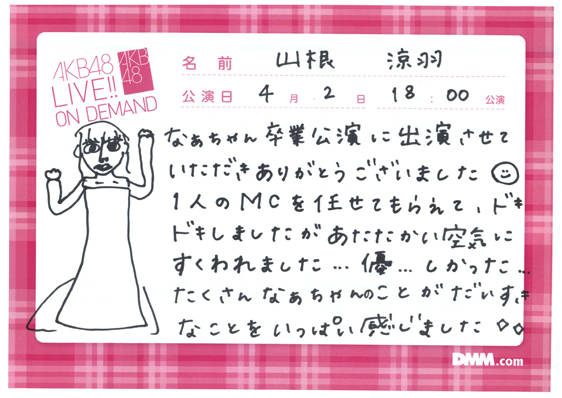 AKB48
LIVE!!
ON DEMAND
AKB
48
名前 山根 涼羽
公演日 4月2日 18:00公演
なぁちゃん卒業公演に出演させて
いただきありがとうございました
1人のMCを任せてもらえて、ドキ
ドキしましたがあたたかい空気に
すくわれました…優…しかった…
たくさんなぁちゃんのことがだいすき
なことをいっぱい感じました
DMM.com